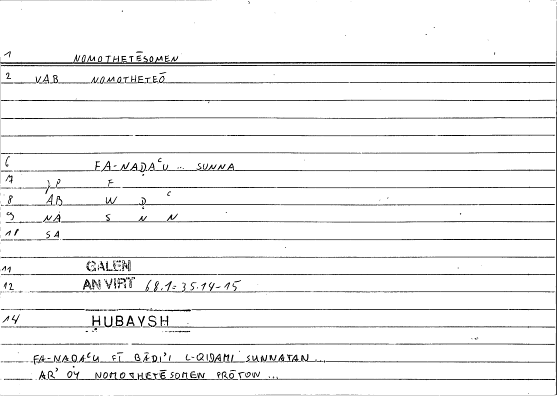 1 NOMOTHETĒSOMEN
2 VAB NOMOTHETEŌ
6 FA-NAḌAʿU ... SUNNA
7 JP F
8 ĀB W Ḍ ʿ
9 NA S N N
10 SA
11 GALEN
12 AN VIRT 68.1 = 35.14-15
14 ḤUBAYSH
FA-NAḌAʿU FĪ BĀDIʾI L-QIDAMI SUNNATAN ...
AR' OY NOMOTHETĒSOMEN PRŌTON ...